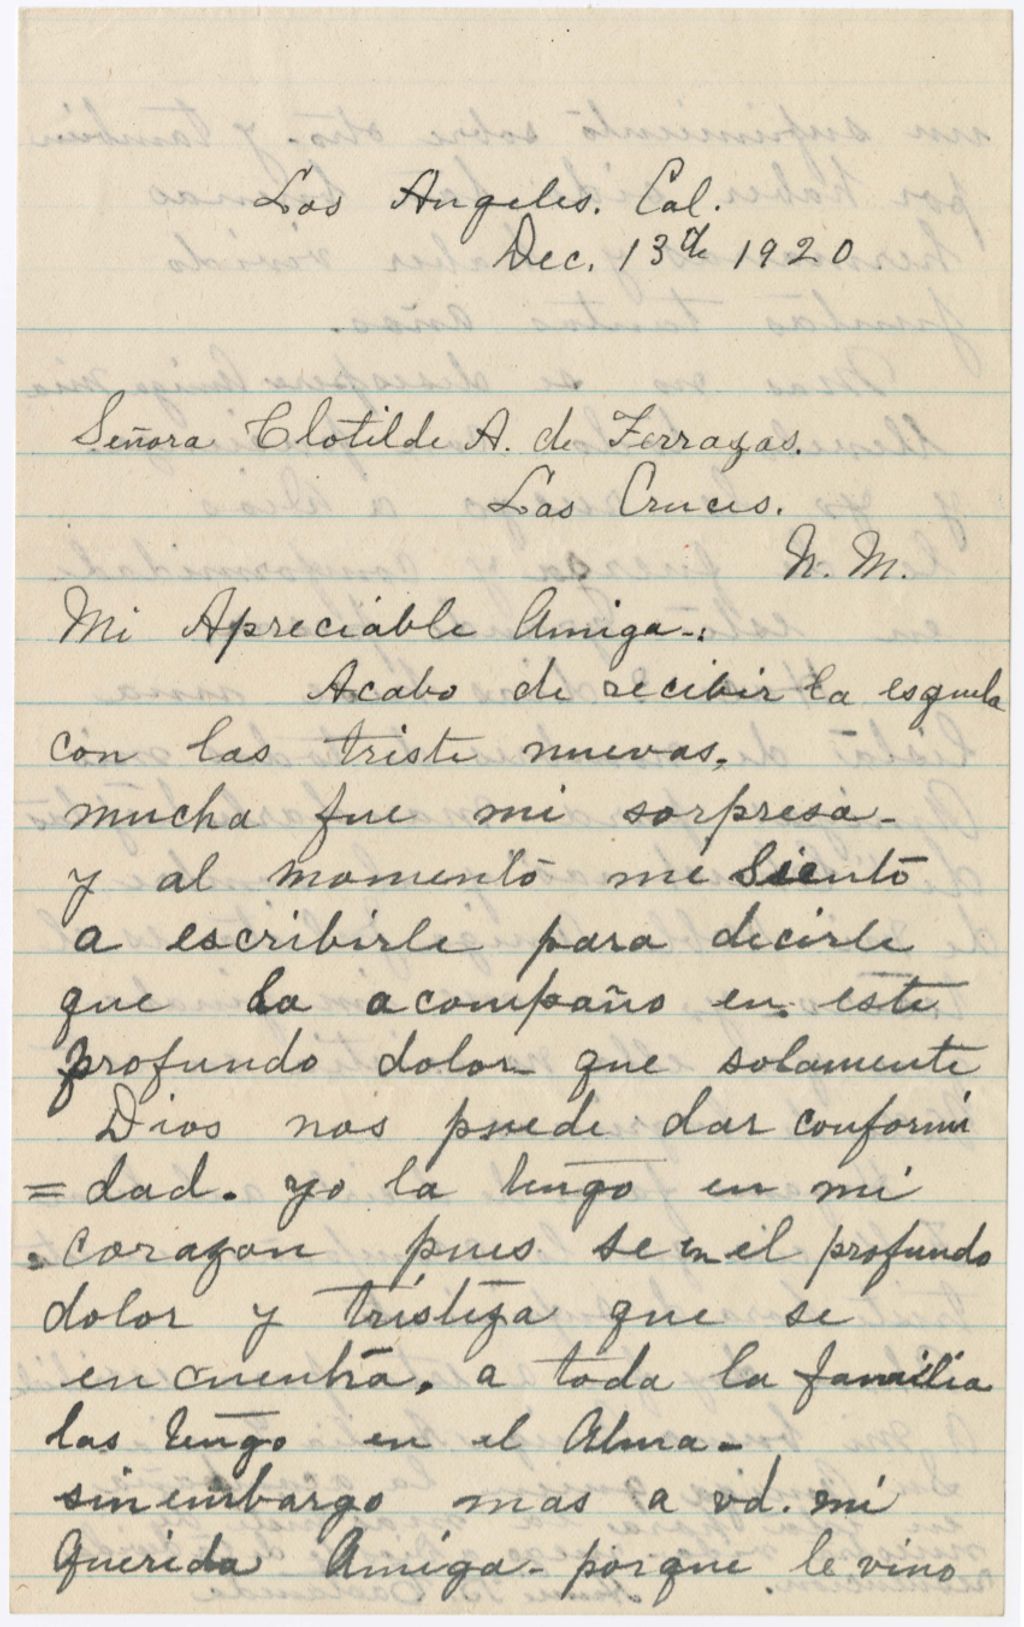 Los Angeles. Cal.
Dec. 13th 1920
Señora Clotilde A. de Terrazas.
Las Cruces.
N. M.
Mi Apreciable Amiga-:
Acabo de recibir la esquela
con las triste nuevas.
mucha fue mi sorpresa-
y al momento me siento
a escribirle para decirle
que la acompaño en este
profundo dolor que solamente
Dios nos puede dar conformi
=dad. yo la tengo en mi
=corazon pues se en el profundo
dolor y tristeza que se
encuentra. a toda la familia
las tengo en el Alma-
sinembargo mas a vd. mi
Querida Amiga- porque le vino